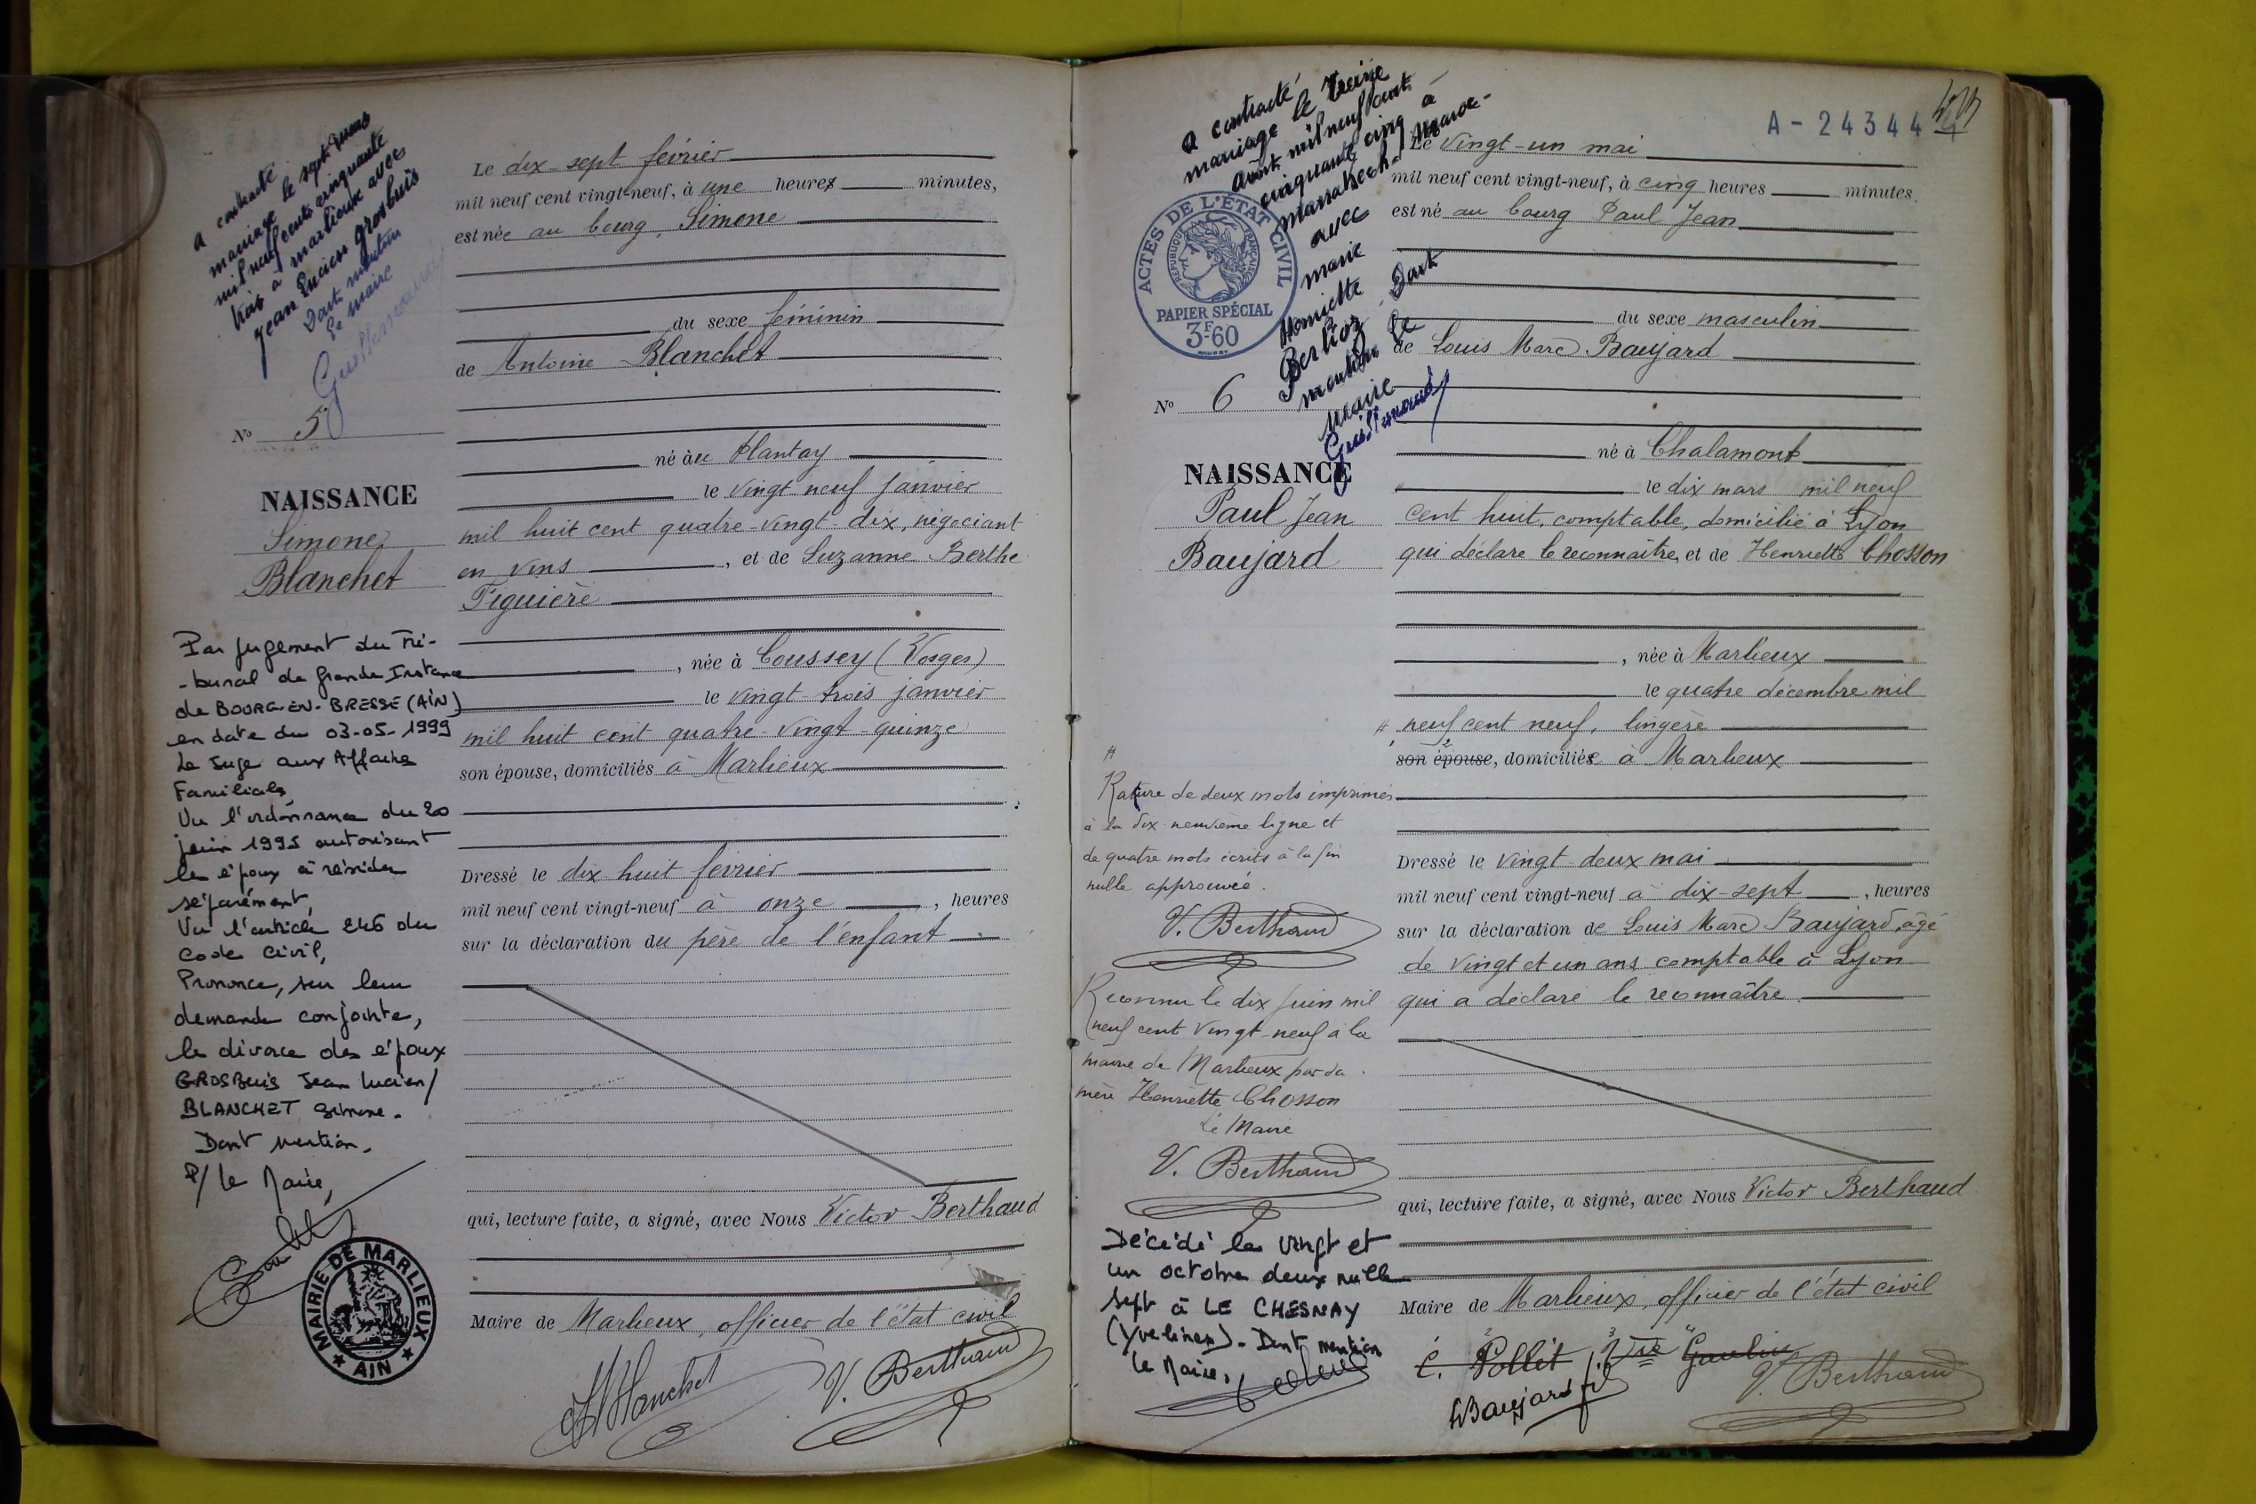 a contracté
mariage le sept mars
mil neuf cents cinquante
trois à marlieux avec
Jean Lucien grosbuis
Dont mention
Le maire
Nº 5
NAISSANCE
Simone
Blanchet
Par jugement du Tri-
-bunal de Grande Instance
de BOURG-EN-BRESSE (AIN)
en date du 03-05-1999
Le Juge aux Affaires
Familiales
Vu l'ordonnance du 20
juin 1995 autorisant
les époux à résider
séparément,
Vu l'article 246 du
Code Civil,
Prononce, sur leur
demande conjointe,
le divorce des époux
GROSBUIS Jean Lucien/
BLANCHET Simone.
Dont mention.
P/ le Maire,
MAIRIE DE MARLIEUX
★ AIN ★
Le dix-sept février
mil neuf cent vingt-neuf, à une heures minutes,
est née au bourg, Simone
du sexe féminin
de Antoine Blanchet
né au Plantay
le vingt neuf janvier
mil huit cent quatre-vingt-dix, négociant
en vins, et de Suzanne Berthe
Figuière
, née à Coussey (Vosges)
le vingt-trois janvier
mil huit cent quatre-vingt-quinze
son épouse, domiciliés à Marlieux
Dressé le dix huit février
mil neuf cent vingt-neuf à onze, heures
sur la déclaration du père de l'enfant
qui, lecture faite, a signé, avec Nous Victor Berthaud
Maire de Marlieux, officier de l'état civil
Blanchet V. Berthaud
a contracté
mariage le treize
août mil neuf cent
cinquante cinq à
Marrakech-Maroc-
avec
marie
Henriette
Berlioz. Dont
mention Le
Maire
ACTES DE L'ÉTAT CIVIL
RÉPUBLIQUE FRANÇAISE
PAPIER SPÉCIAL
3F60
Nº 6
NAISSANCE
Paul Jean
Baujard
Rature de deux mots imprimés
à la dix-neuvième ligne et
de quatre mots écrits à la fin
nulle approuvée.
V. Berthaud
Reconnu le dix juin mil
neuf cent vingt-neuf à la
mairie de Marlieux par sa
mère Henriette Chosson
Le Maire
V. Berthaud
Décédé le vingt et
un octobre deux mille
sept à LE CHESNAY
(Yvelines). Dont mention
le Maire,
A-24344
Le vingt-un mai
mil neuf cent vingt-neuf, à cinq heures minutes.
est né au bourg Paul Jean
du sexe masculin
de Louis Marc Baujard
né à Chalamont
le dix mars mil neuf
cent huit, comptable, domicilié à Lyon
qui déclare le reconnaître, et de Henriette Chosson
, née à Marlieux
le quatre décembre mil
neuf cent neuf, lingère
son épouse, domiciliée à Marlieux
Dressé le vingt-deux mai
mil neuf cent vingt-neuf à dix-sept, heures
sur la déclaration de Louis Marc Baujard, âgé
de vingt et un ans comptable à Lyon
qui a déclaré le reconnaître.
qui, lecture faite, a signé, avec Nous Victor Berthaud
Maire de Marlieux, officier de l'état civil
Baujard fils V. Berthaud